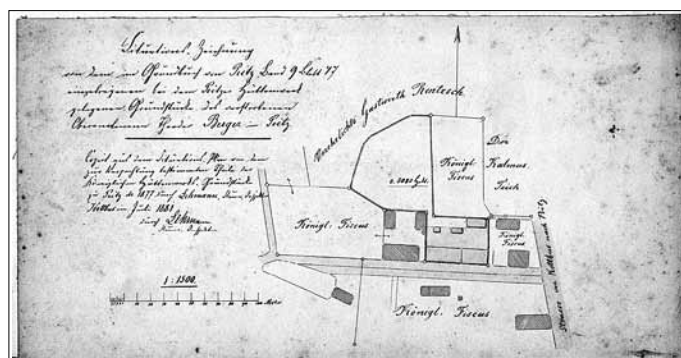 Situations-Zeichnung
von dem im Grundbuch von Peitz Band 9 Blatt
eingetragenen bei dem Peitzer Hüttenwerk
gelegenen Grundstücke des verstorbenen
Oberamtmann Theodor Berger in Peitz
Copie aus dem Situations-Plan von den
zur Verpachtung bestimmten Theile des
Königlichen Hüttenwerks-Grundstücks
zu Peitz de 1877 durch Lehmann
Cottbus im Juli 1881
durch Lehmann
1:1500.
Verehelichte Gastwirth Rentesch
Königl. Fiscus
Der
Kalmus
Teich
Königl. Fiscus
Königl. Fiscus
Königl. Fiscus
Strasse von Kottbus nach Peitz